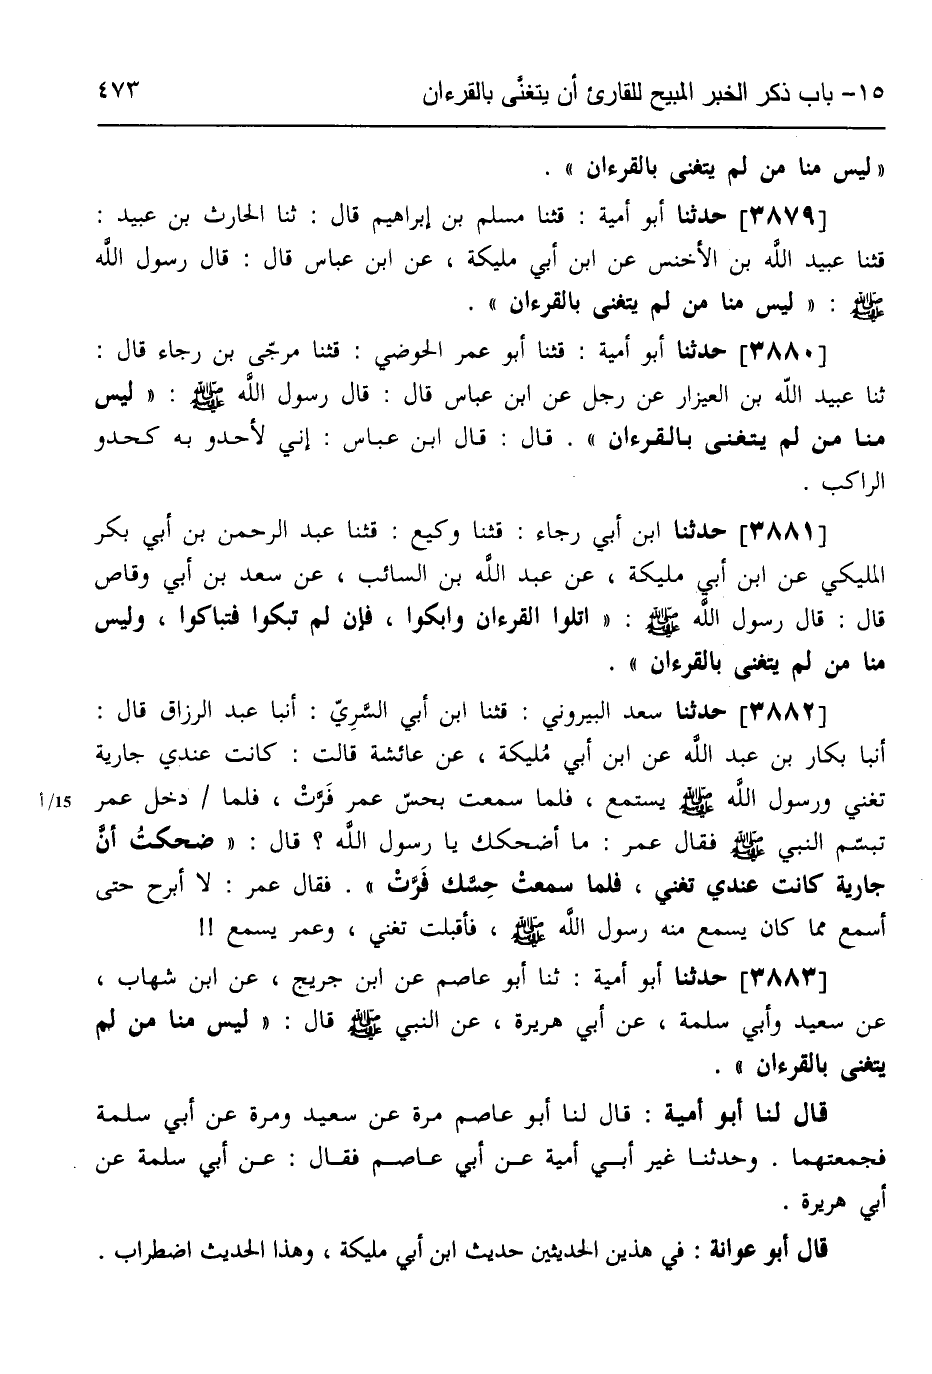 ١٥- باب ذكر الخبر المبيح للقارئ أن يتغنَّى بالقرءان ٤٧٣
« ليس منا من لم يتغنى بالقرءان » .
[٣٨٧٩] حدثنا أبو أمية : قثنا مسلم بن إبراهيم قال : ثنا الحارث بن عبيد :
قثنا عبيد اللَّه بن الأخنس عن ابن أبي مليكة ، عن ابن عباس قال : قال رسول اللَّه
ﷺ : « ليس منا من لم يتغنى بالقرءان » .
[٣٨٨٠] حدثنا أبو أمية : قثنا أبو عمر الحوضي : قثنا مرجّى بن رجاء قال :
ثنا عبيد اللَّه بن العيزار عن رجل عن ابن عباس قال : قال رسول اللَّه ﷺ : « ليس
منا من لم يتغنى بالقرءان » . قال : قال ابن عباس : إني لأحدو به كحدو
الراكب .
[٣٨٨١] حدثنا ابن أبي رجاء : قثنا وكيع : قثنا عبد الرحمن بن أبي بكر
المليكي عن ابن أبي مليكة ، عن عبد اللَّه بن السائب ، عن سعد بن أبي وقاص
قال : قال رسول اللَّه ﷺ : « اتلوا القرءان وابكوا ، فإن لم تبكوا فتباكوا ، وليس
منا من لم يتغنى بالقرءان » .
[٣٨٨٢] حدثنا سعد البيروني : قثنا ابن أبي السَّرِيّ : أنبا عبد الرزاق قال :
أنبا بكار بن عبد اللَّه عن ابن أبي مُليكة ، عن عائشة قالت : كانت عندي جارية
تغني ورسول اللَّه ﷺ يستمع ، فلما سمعت بحسّ عمر فَرَّتْ ، فلما / دخل عمر 15/أ
تبسّم النبي ﷺ فقال عمر : ما أضحكك يا رسول اللَّه ؟ قال : « ضحكتُ أنَّ
جارية كانت عندي تغني ، فلما سمعتْ حِسَّك فَرَّتْ » . فقال عمر : لا أبرح حتى
أسمع مما كان يسمع منه رسول اللَّه ﷺ ، فأقبلت تغني ، وعمر يسمع !!
[٣٨٨٣] حدثنا أبو أمية : ثنا أبو عاصم عن ابن جريج ، عن ابن شهاب ،
عن سعيد وأبي سلمة ، عن أبي هريرة ، عن النبي ﷺ قال : « ليس منا من لم
يتغنى بالقرءان » .
قال لنا أبو أمية : قال لنا أبو عاصم مرة عن سعيد ومرة عن أبي سلمة
فجمعتهما . وحدثنا غير أبي أمية عن أبي عاصم فقال : عن أبي سلمة عن
أبي هريرة .
قال أبو عوانة : في هذين الحديثين حديث ابن أبي مليكة ، وهذا الحديث اضطراب .